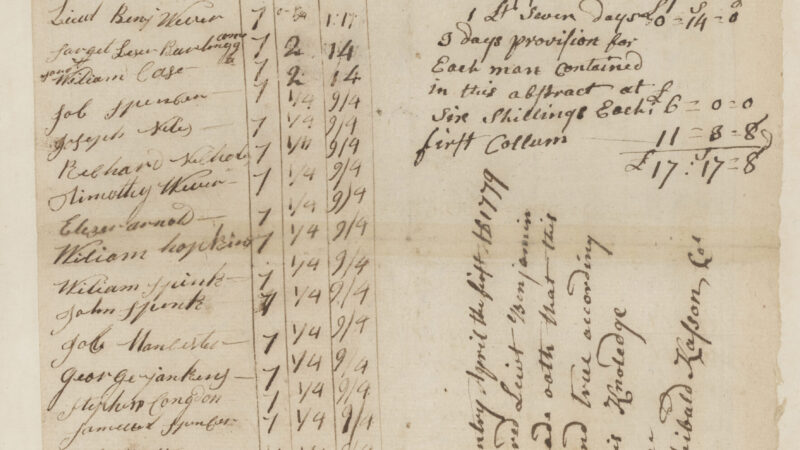 Lieut Benj Wever 7 1:17
Sarget 7 2 14
William Case 7 2 14
Job Spencer 7 1/4 9/4
Joseph Niles 7 1/4 9/4
Richard Nichols 7 1/4 9/4
Timothy Wever 7 1/4 9/4
Elezer arnold 7 1/4 9/4
William hopkins 7 1/4 9/4
William Spink 7 1/4 9/4
John Spink 7 1/4 9/4
Job Hancester 7 1/4 9/4
George jankens 7 1/4 9/4
Stephen Congdon 7 1/4 9/4
Spencer 7 1/4 9/4
1 Lt Seven days £0=14=0
3 days provision for
Each man Contained
in this abstract at £
Six Shillings Each 6=0=0
first Collum 11=3=8
£17:17=8
April the first 1779
red Lieut Benjamin
ade oath that this
nd true according
is Knoledge
ibald Kasson